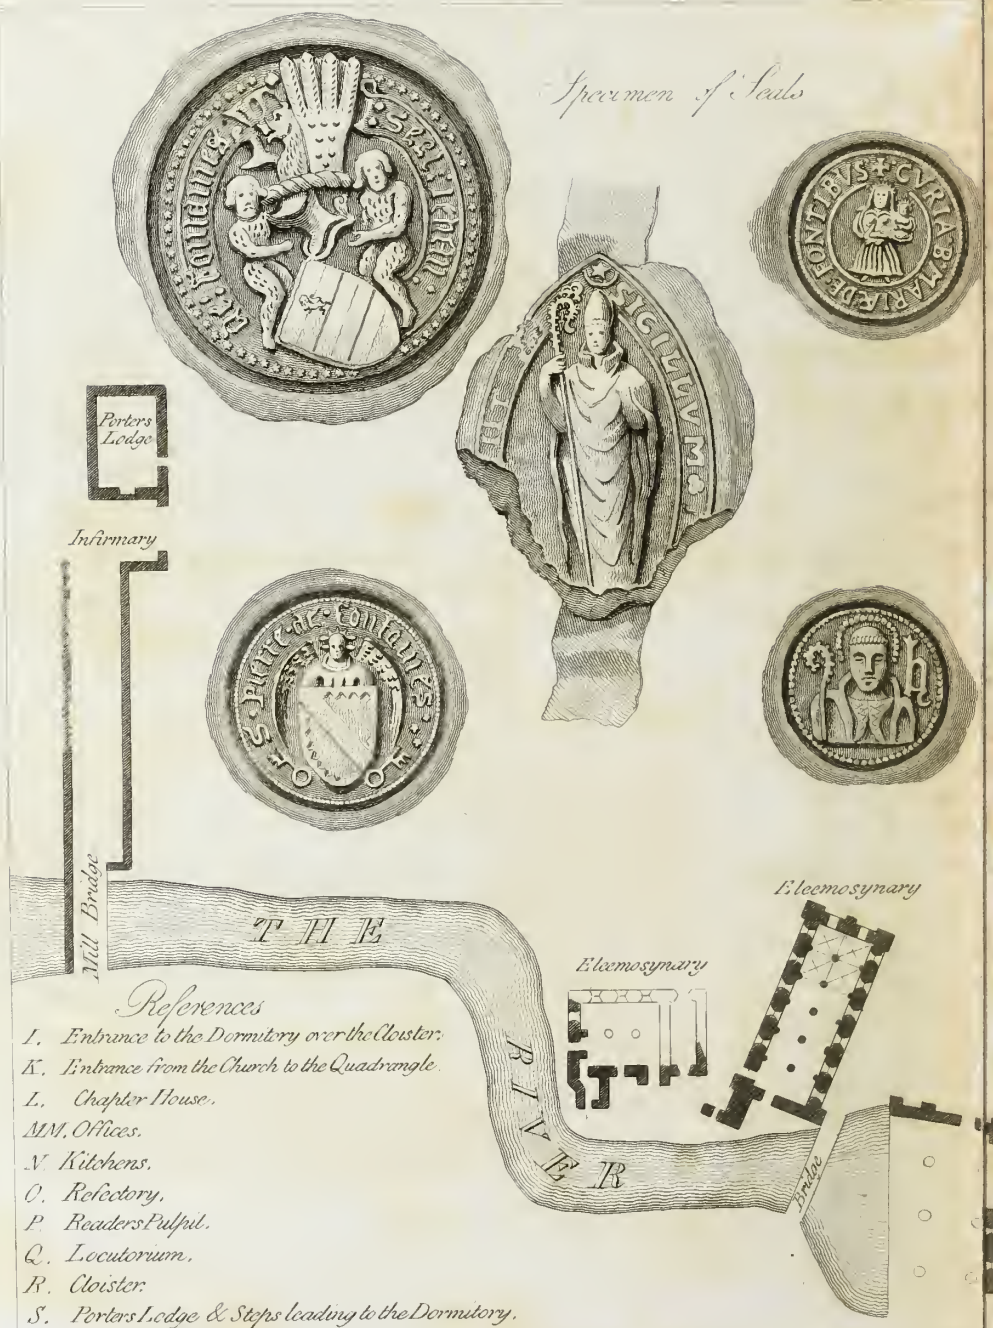 Specimen of Seals
de: Fontaines
CVRIA B MARIÆ DE FONTIBVS
SIGILLVM
Porters
Lodge
Infirmary
S Pierre de Fontaines
h
Mill Bridge
THE
RIVER
Eleemosynary
Eleemosynary
Bridge
References
I. Entrance to the Dormitory over the Cloister.
K. Entrance from the Church to the Quadrangle.
L. Chapter House.
MM. Offices.
N Kitchens.
O. Refectory.
P. Readers Pulpit.
Q. Locutorium.
R. Cloister.
S. Porters Lodge & Steps leading to the Dormitory.